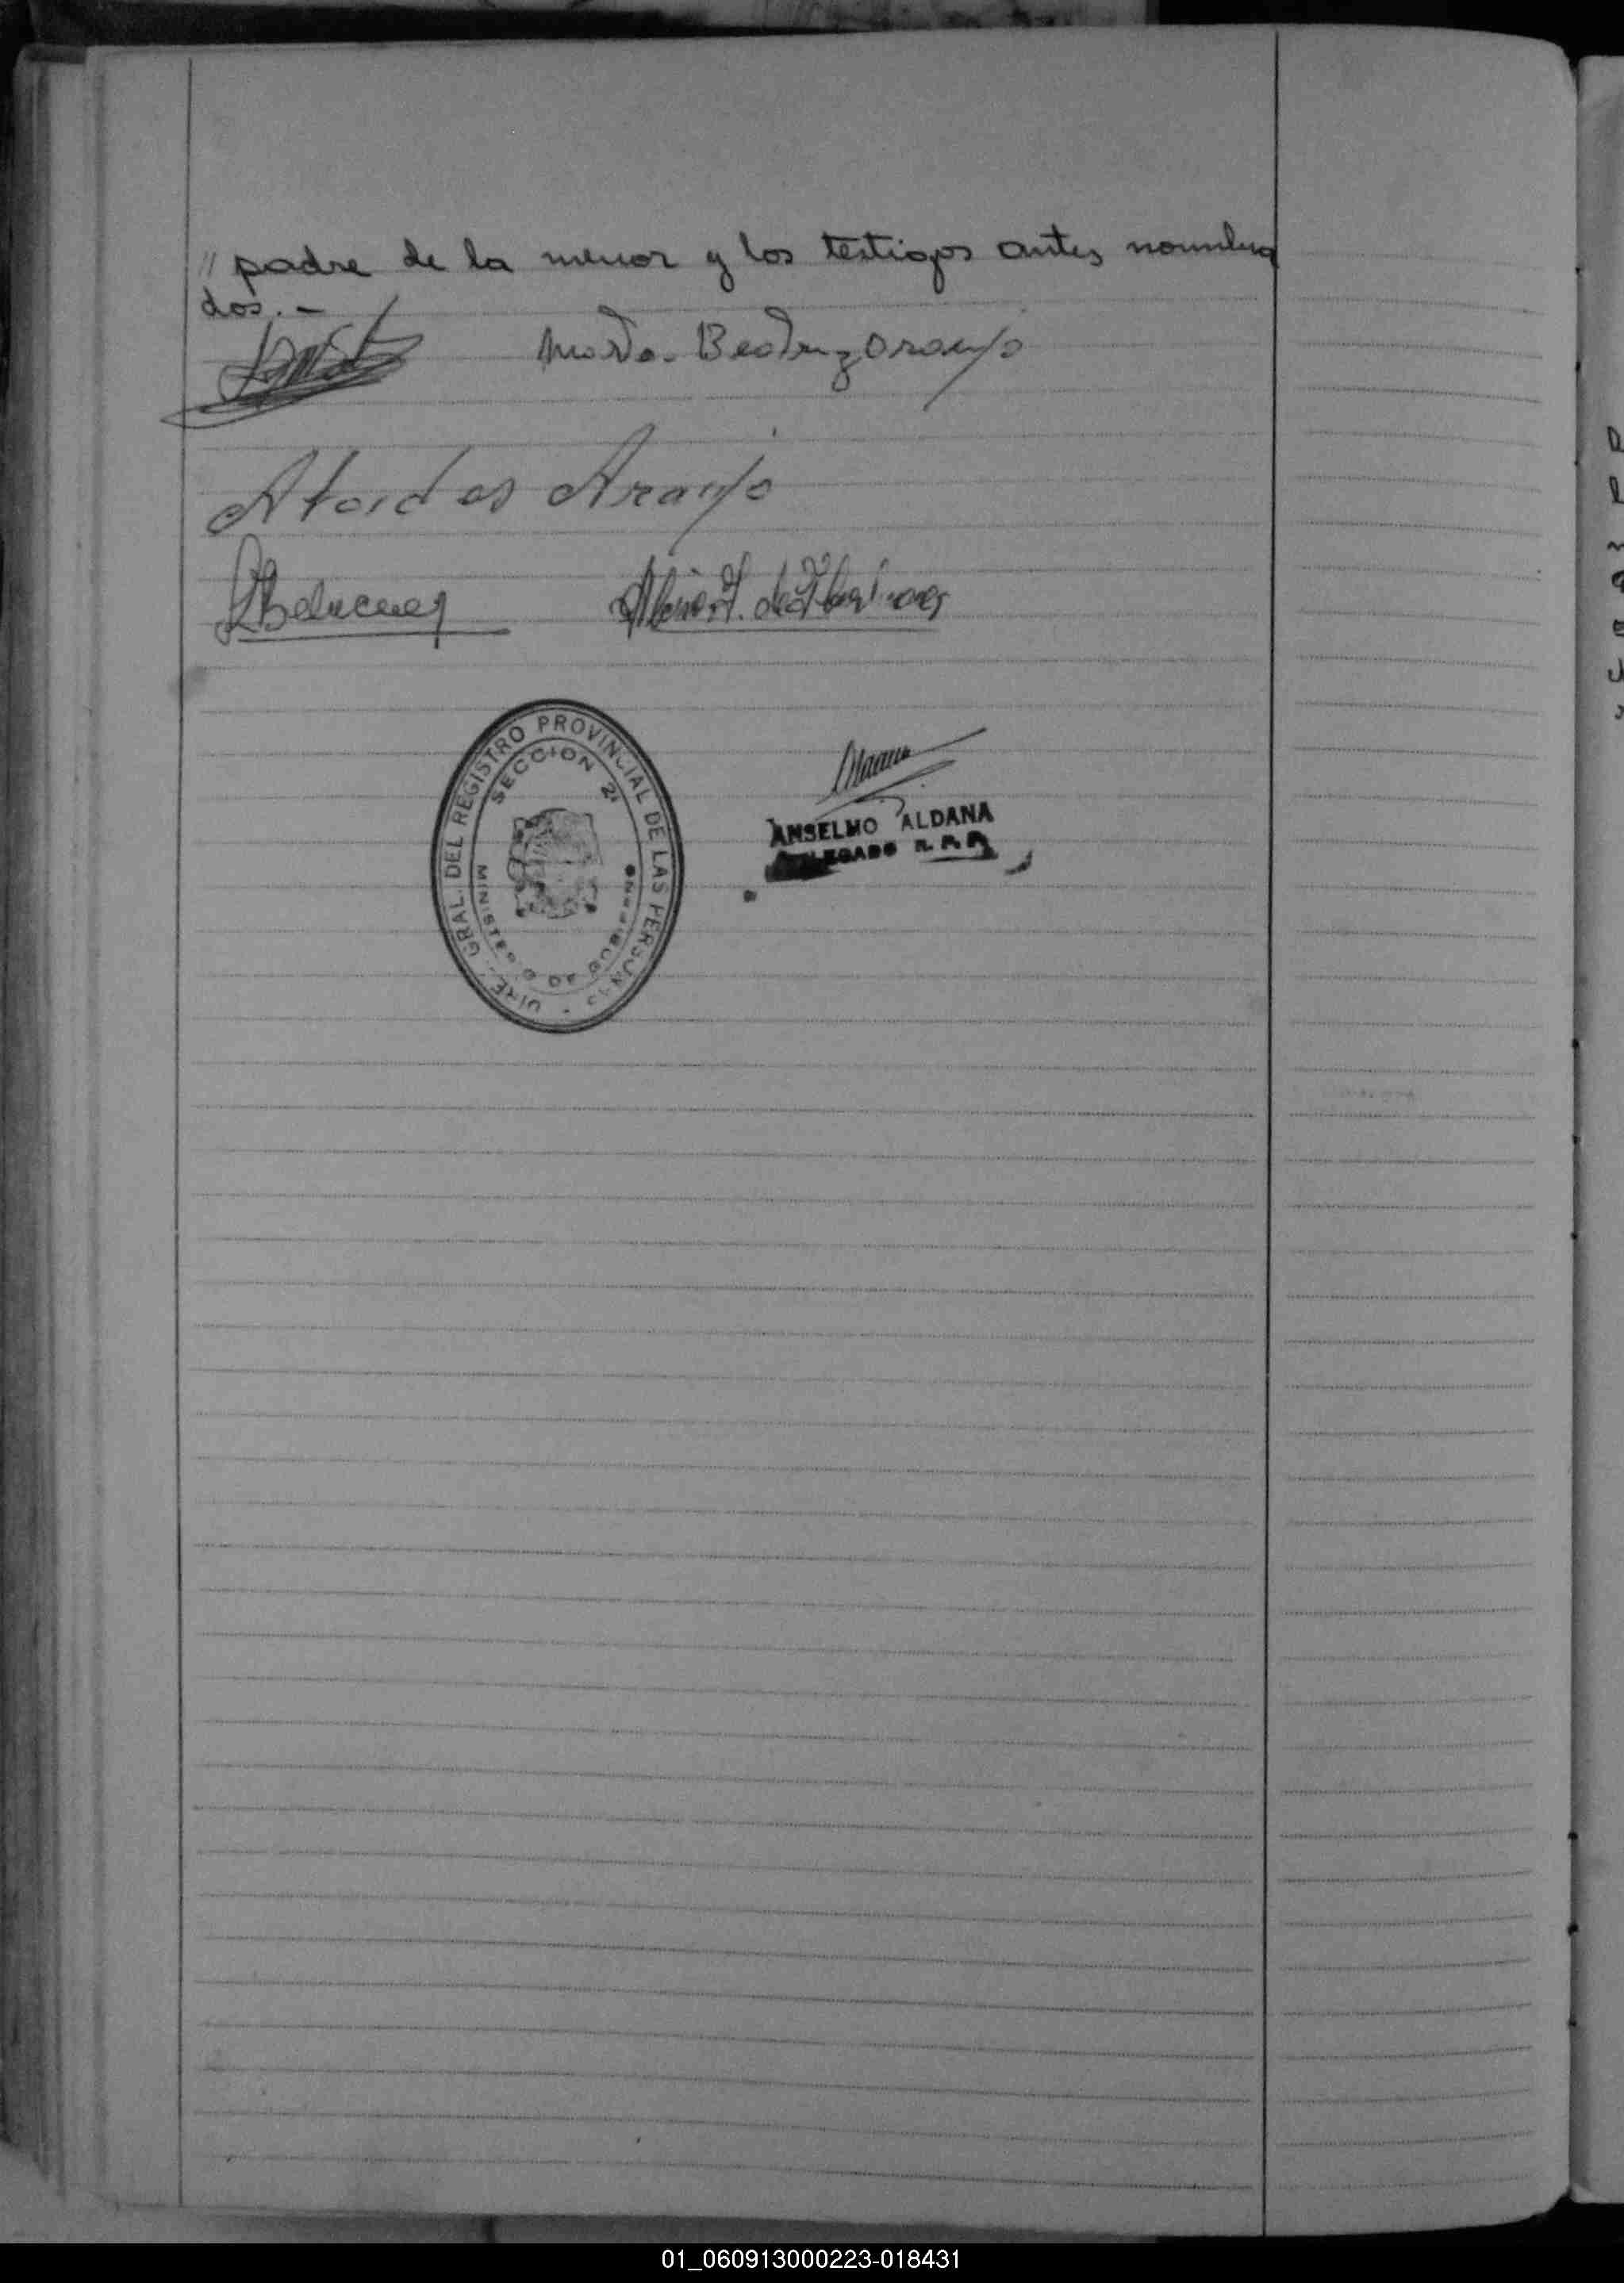 " padre de la menor y los testigos antes nombra
dos. -
Marta Beatriz Araujo
Araujo
DIRE. GRAL. DEL REGISTRO PROVINCIAL DE LAS PERSONAS
SECCION 2ª
MINISTERIO DE GOBIERNO
ANSELMO ALDANA
DELEGADO R. P. P.
01_060913000223-018431